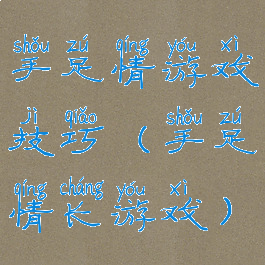 shǒu zú qíng yóu xì
手足情游戏
jì qiǎo shǒu zú
技巧(手足
qíng cháng yóu xì
情长游戏)